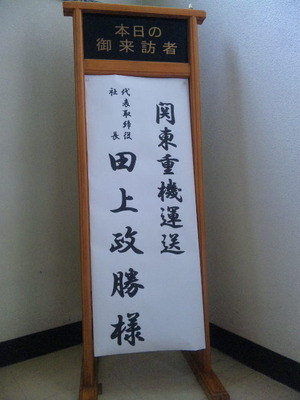 本日の
御来訪者
関東重機運送
代表取締役
社長
田上政勝様